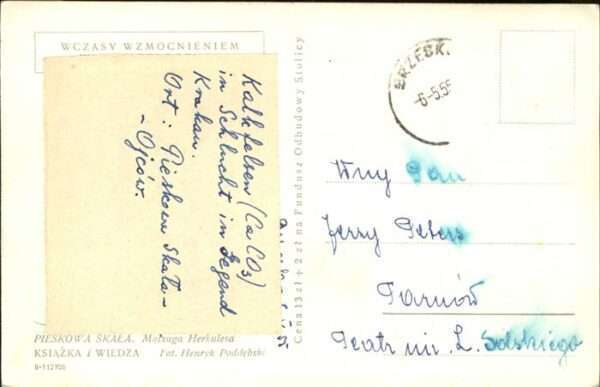 WCZASY WZMOCNIENIEM
Kalkfelsen (CaCO3)
in Schlucht in Gegend
Krakau.
Ort: Pieskowa Skała-
-Ojców.
PIESKOWA SKAŁA. Maczuga Herkulesa
KSIĄŻKA i WIEDZA Fot. Henryk Poddębski
Cena 13 zł + 2 zł na Fundusz Odbudowy Stolicy
BRZESK
-6-5.55
Wny Pan
Jerzy Peters
Tarnów
Teatr im. L. Solskiego